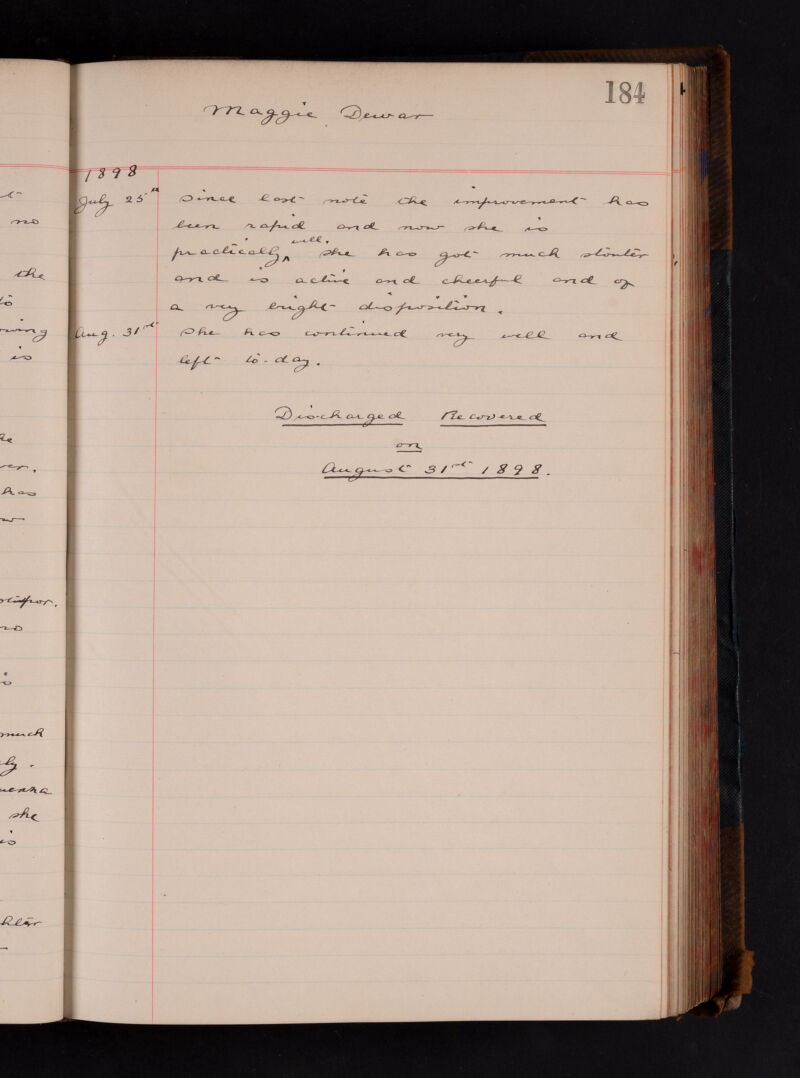 184
Maggie Dewar
1898
July 25th Since last note the improvement has
been rapid and now she is
practically well. She has got much stouter
and is active and cheerful and of
a very bright disposition.
Aug. 31st She has continued very well and
left to-day.
Discharged Recovered
on
August 31st 1898.
no
the
is
has
much
she
is